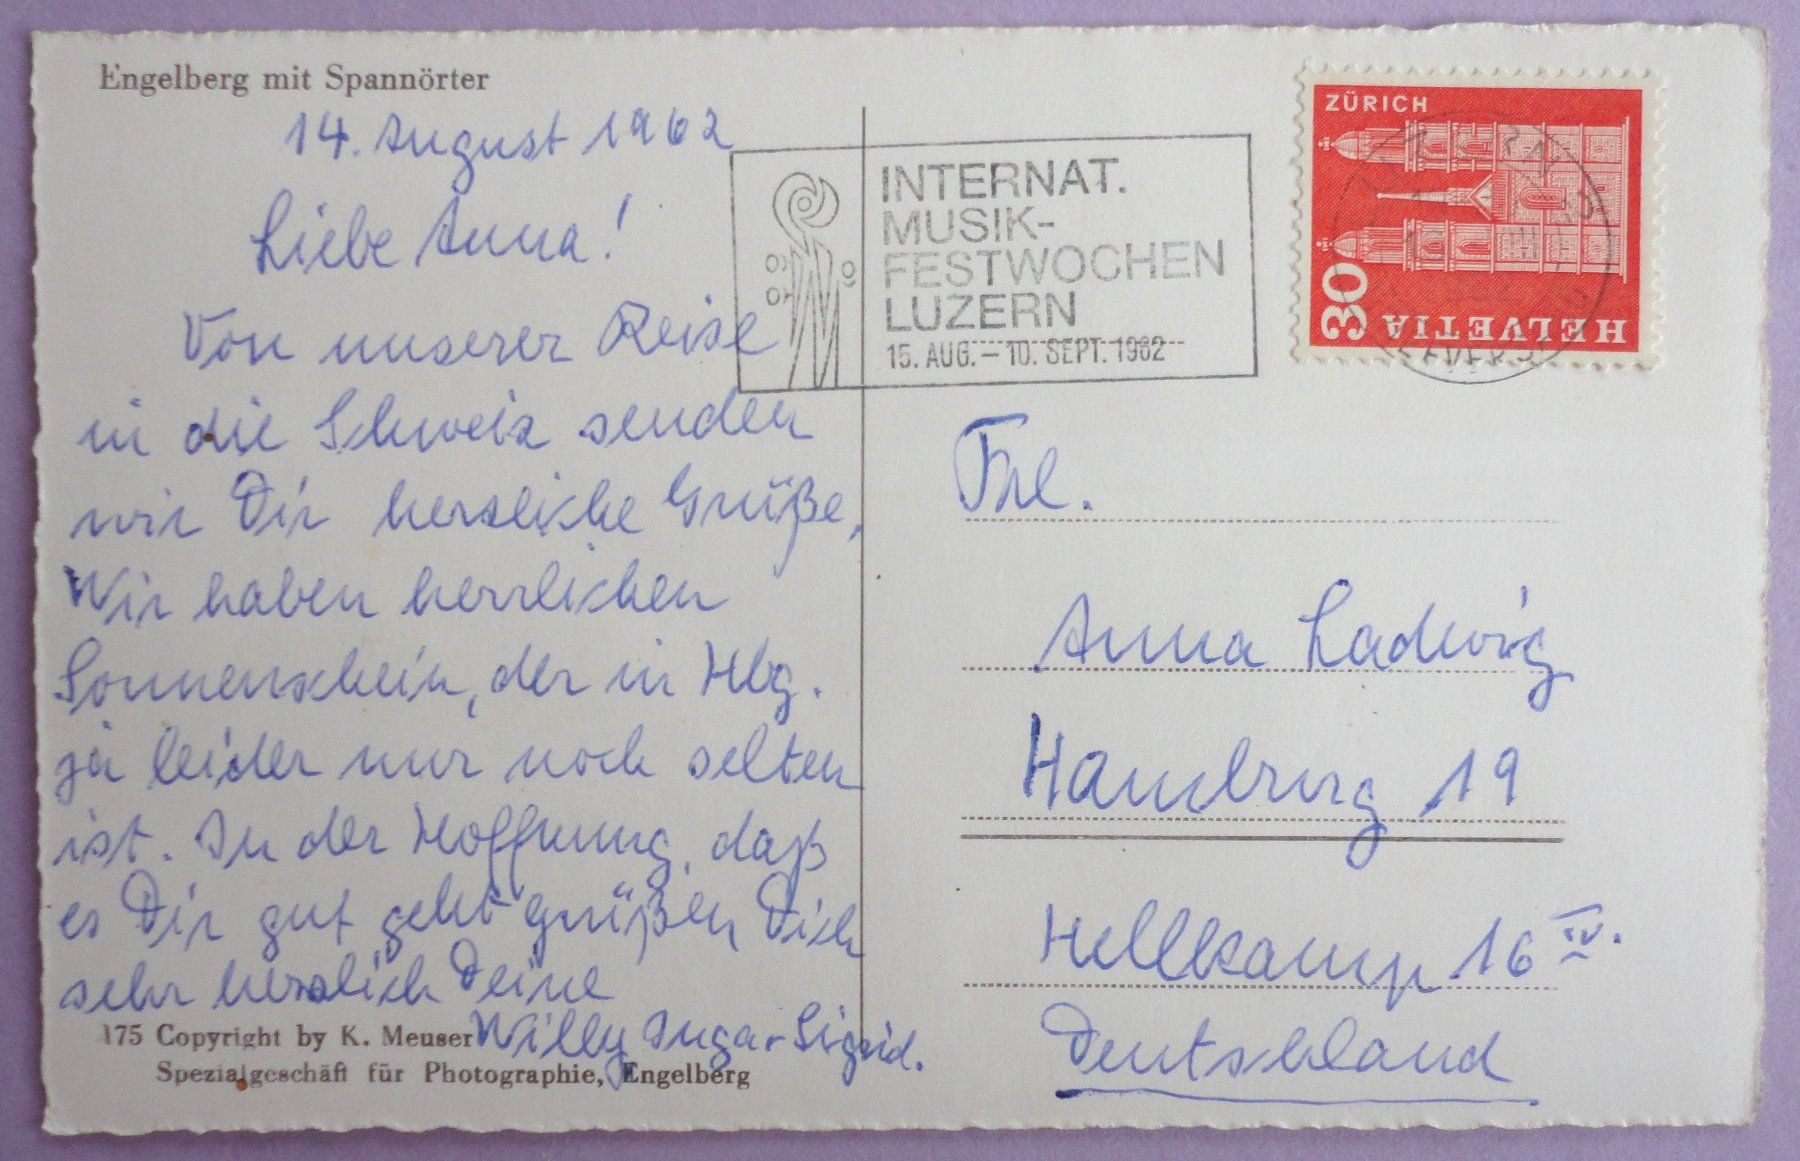 Engelberg mit Spannörter
14. August 1962
Liebe Anna!
Von unserer Reise
in die Schweiz senden
wir Dir herzliche Grüße,
Wir haben herrlichen
Sonnenschein, der in Hbg.
ja leider nur noch selten
ist. In der Hoffnung, daß
es Dir gut geht grüßen Dich
sehr herzlich Deine
Willy Inga + Sigrid.
175 Copyright by K. Meuser
Spezialgeschäft für Photographie, Engelberg
INTERNAT.
MUSIK-
FESTWOCHEN
LUZERN
15. AUG. – 10. SEPT. 1962
ZÜRICH
30
HELVETIA
Frl.
Anna Ladwig
Hamburg 19
Hellkamp 16 IV.
Deutschland